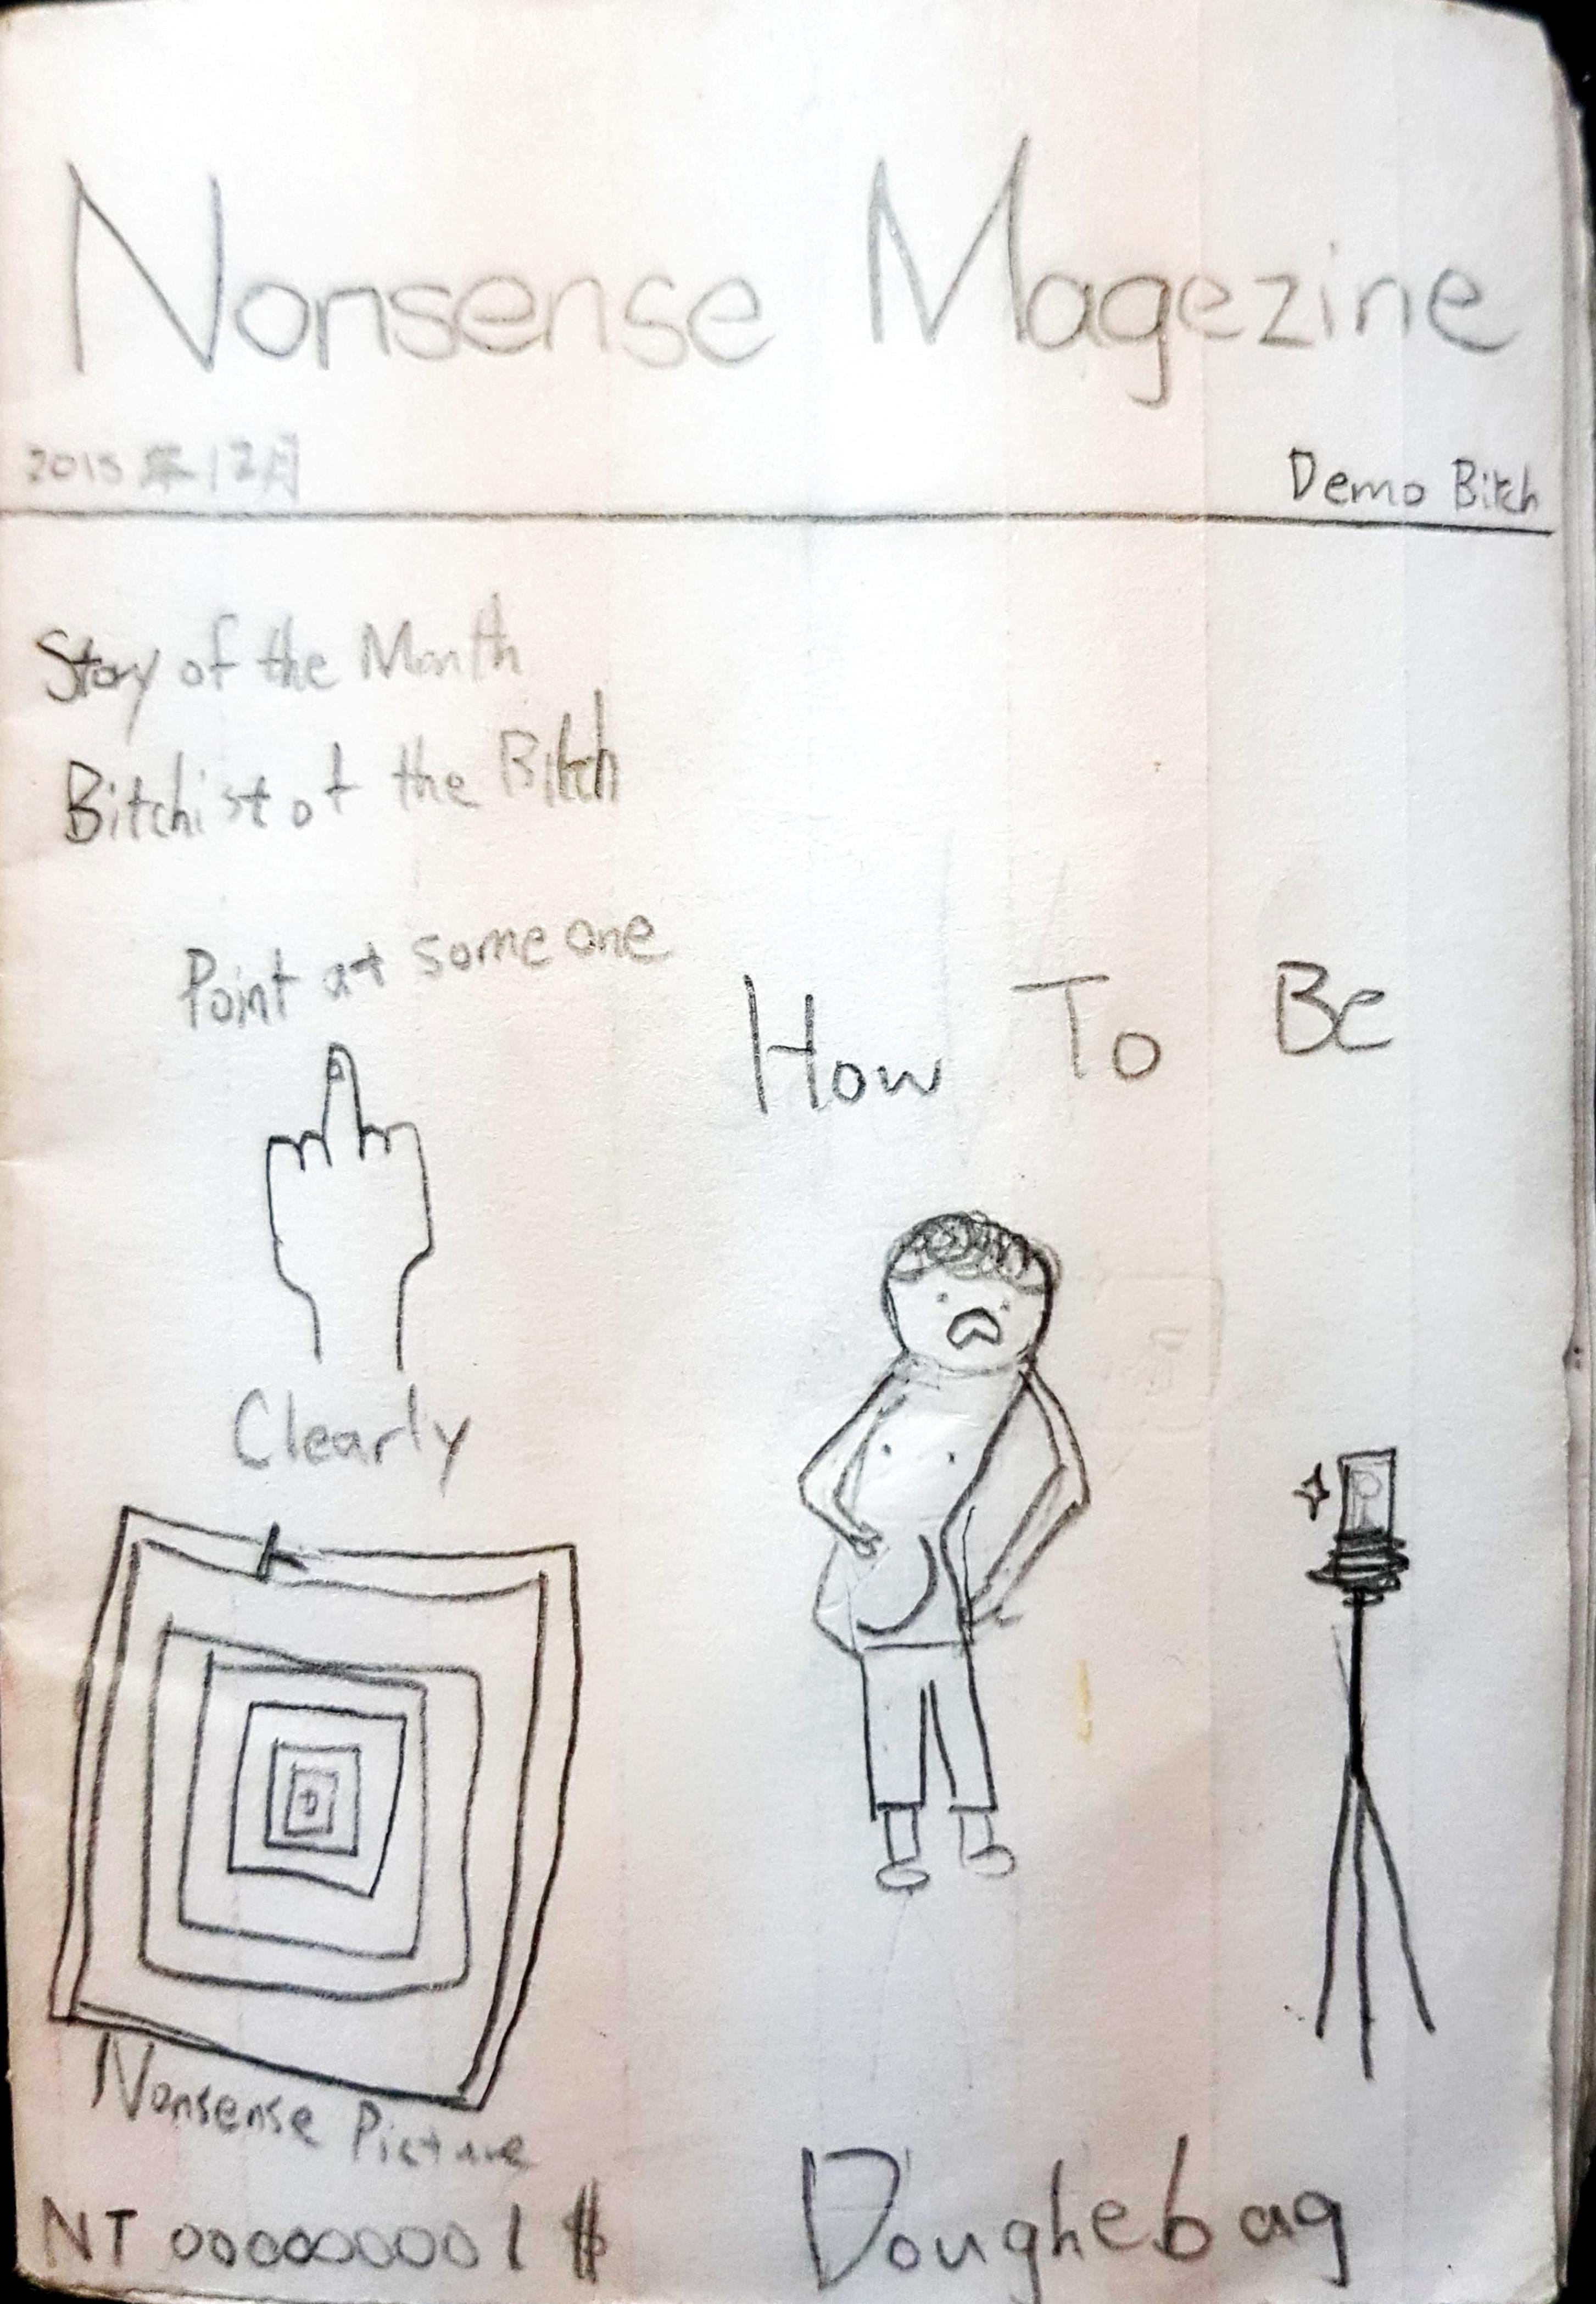 Nonsense Magezine
2015年12月
Demo Bitch
Story of the Month
Bitchist of the Bitch
Point at someone
Clearly
How To Be
Doughebag
Nonsense Picture
NT 000000001 $